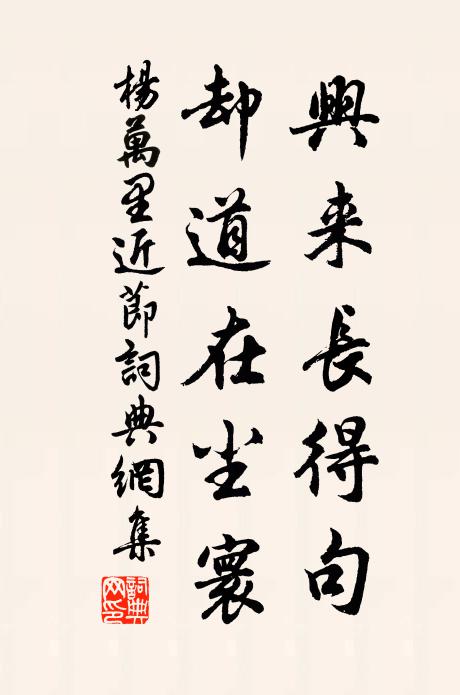 興来長得句
却道在尘寰
楊萬里近節詞典網集
詞典网印